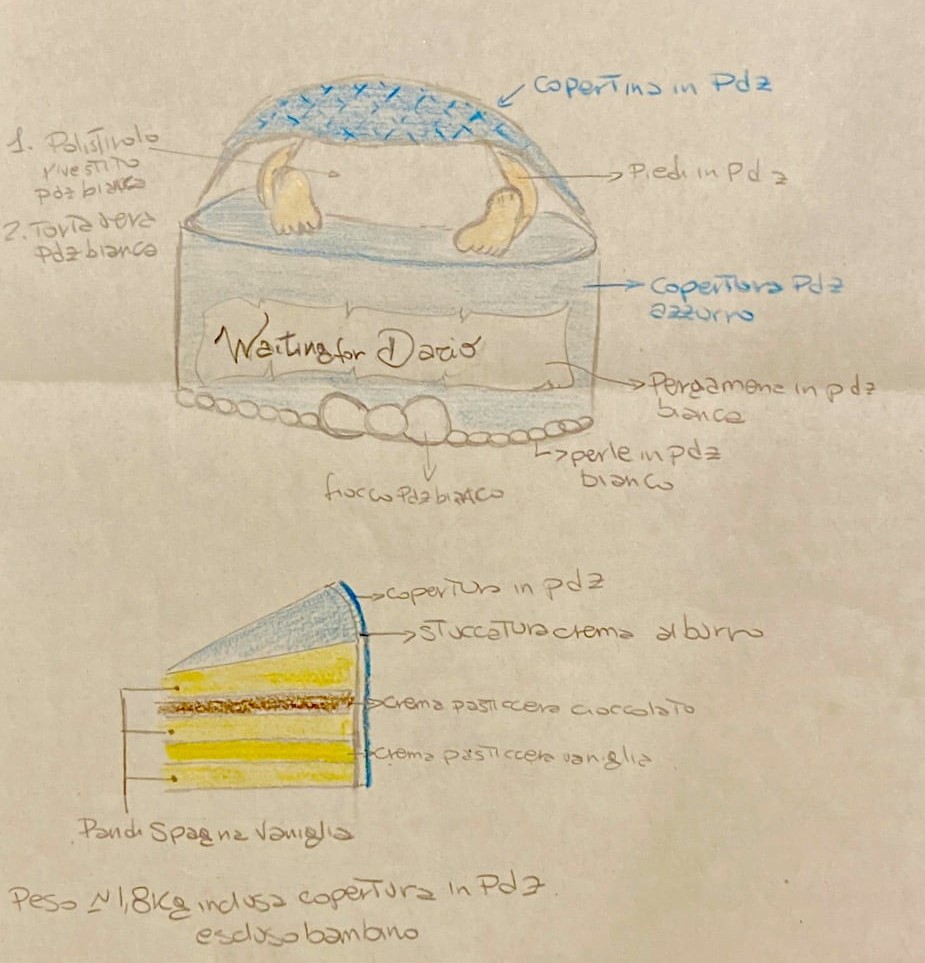 copertina in Pdz
1. Polistirolo
rivestito
pdz bianco
Piedi in Pdz
2. Torta vera
pdz bianco
copertura Pdz
azzurro
Waiting for Dario
Pergamena in pdz
bianca
perle in pdz
bianco
fiocco Pdz bianco
copertura in pdz
stuccatura crema al burro
crema pasticcera cioccolato
crema pasticcera vaniglia
Pan di Spagna Vaniglia
Peso ~1,8Kg inclusa copertura in Pdz.
escluso bambino